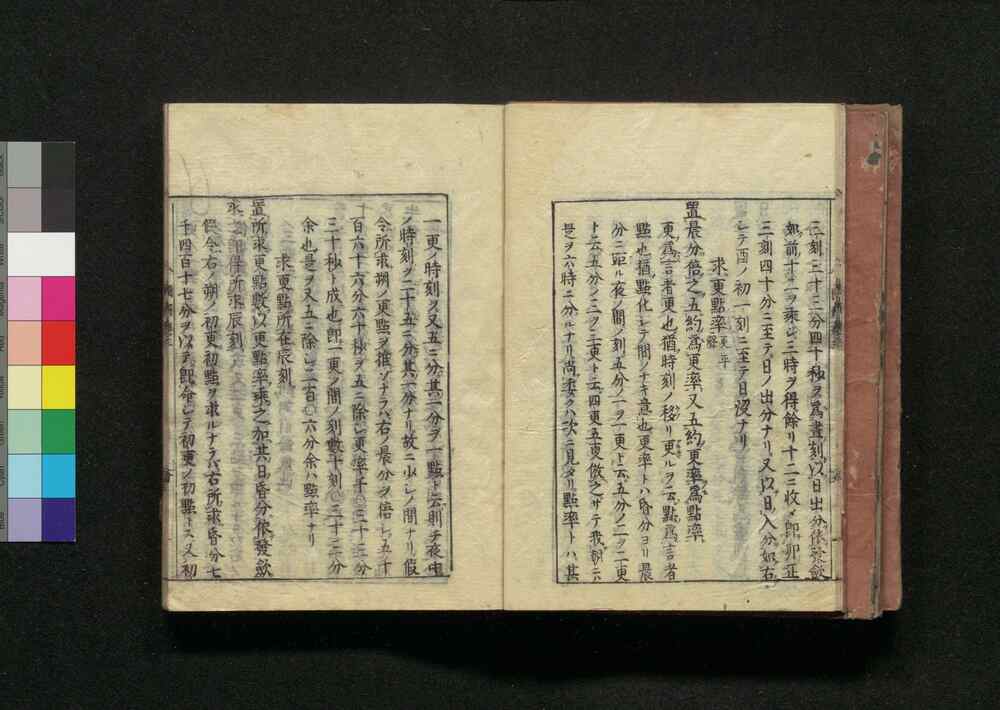 三刻三十三分四十秒ヲ為晝刻以日出分依發斂
如前十二ヲ乗シ三時ヲ得餘リ十二ニ收メ即卯正
三刻四十分ニ至テ日ノ出分ナリ又以日入分如右
シテ酉ノ初一刻ニ至テ日没ナリ
求更點率
置晨分倍之五約為更率又五約更率為點率
更為言者更也猶時刻ノ移リ更ルヲ云點為言者
點也猶點化シテノ間ノナキ意也更率トハ昏分ヨリ晨
分ニ距ル夜ノ間ノ刻五分ノ一ヲ一更ト云五分ノ二ヲ二更
ト云五分ノ三ヲ三更ト云四更五更倣之サテ我朝ニ六
是ヲ六時ニ分ルナリ尚委クハ次ニ見タリ點率トハ其
一更ノ時刻ヲ又五ニ分其一分ヲ一點ト云則チ夜中
ノ時刻ヲ二十五ニ分其一分ナリ故ニ少シノ間ナリ假
令所求朔ノ更點ヲ推ソナラハ右ノ晨分ヲ倍シ五千
百六十六分六十秒ヲ五ニ除シ更率千〇三十三分
三十二秒ト成也即一更ノ間ノ刻數十刻〇三十三分
余也是ヲ又五ニ除シ二百〇六分余ハ點率ナリ
求更點所在辰刻
置所求更點數以更點率乗之加其日昏分依發斂
求之即得所求辰刻
假令右ノ朔ノ初更初點ヲ求ルナラバ右所求昏分七
千四百十七分ヲ以テ即命シテ初更ノ初點トス又初